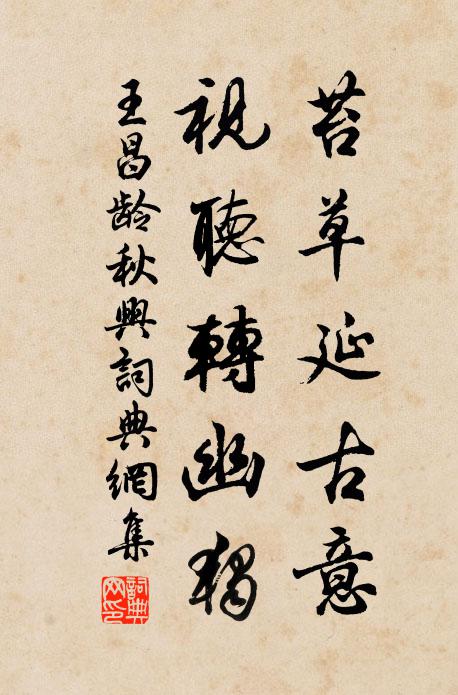 苔草延古意
視聽轉幽獨
王昌龄秋興詞典網集
詞典網印